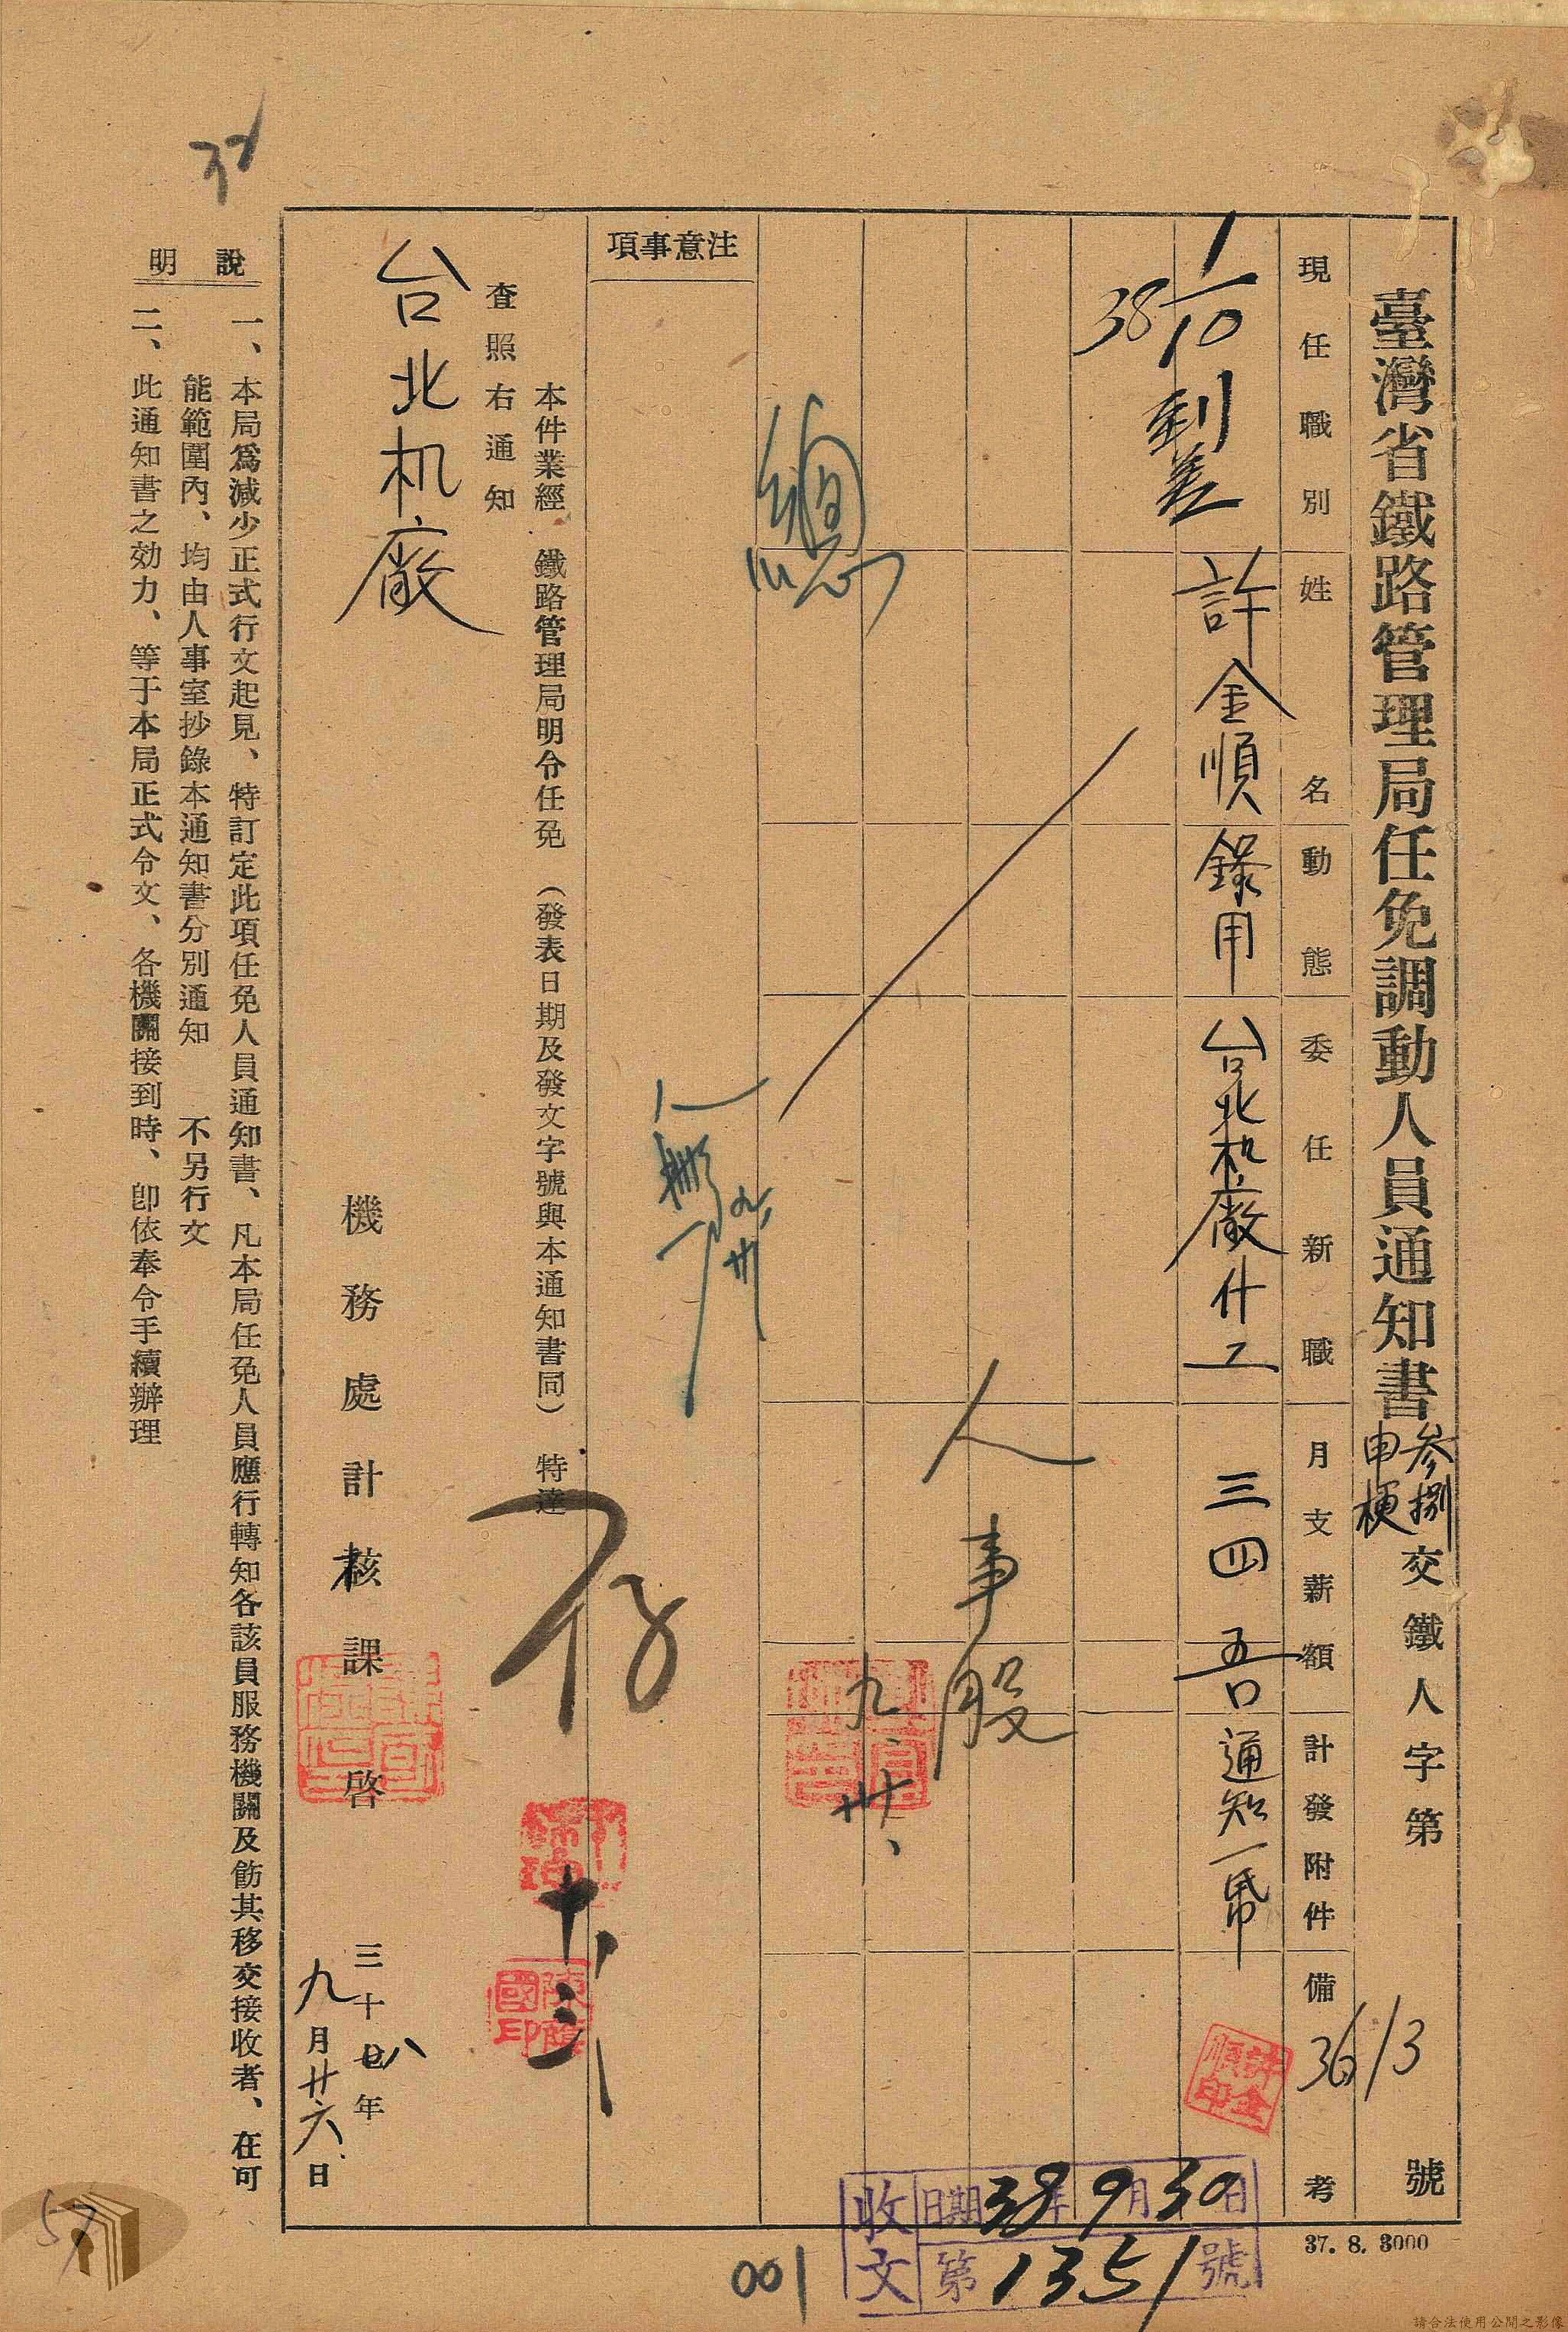 臺灣省鐵路管理局任免調動人員通知書
參捌
申梗
交鐵人字第3613號
現任職別 姓名 動態 委任新職 月支薪額 計發附件 備考
1/10
38
到差
許金順 錄用 台北机廠什工 三四 通知一帋
許金順印
總
人事股
九、卅、
注意事項
九、卅
存
十、三
陳國印
本件業經 鐵路管理局明令任免 (發表日期及發文字號與本通知書同) 特達
查照右通知
台北机廠
機務處計核課啓
三十八年
九月廿六日
說明
一、本局爲減少正式行文起見、特訂定此項任免人員通知書、凡本局任免人員應行轉知各該員服務機關及飭其移交接收者、在可
能範圍內、均由人事室抄錄本通知書分別通知 不另行文
二、此通知書之効力、等于本局正式令文、各機關接到時、卽依奉令手續辦理
收文
日期38年9月30日
第1351號
37. 8. 3000
001
57
請合法使用公開之影像